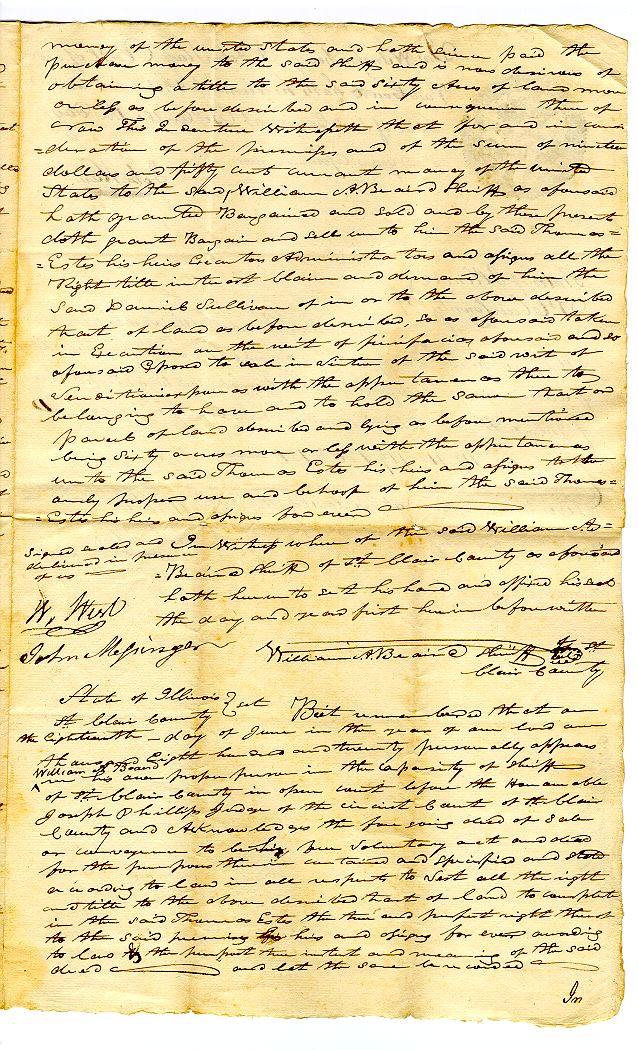 money of the united States and hath since paid the
purchase money to the said Sheriff and is now desirous of
obtaining a title to the said sixty Acres of land more
or less as before described and in consequence there of
Now This Indenture Witnesseth that for and in consi
=deration of the premises and of the sum of nineteen
dollars and fifty cents currant money of the united
States to the said, William A. Beaird Sheriff as aforesaid
hath granted Bargained and Sold and by these present
doth grant Bargain and Sell unto him the said Thomas=
=Estes his heirs Executors Administrators and assigns all the
Right title interest claim and demand of him the
said Daniel Sullivan of in or to the above described
tract of land as before described, so as aforesaid taken
in Execution on the writ of fierifacias aforesaid and so
aforesaid Exposed to sale in virtue of the said writ of
Venditioni exponas with the appurtenances there to
belonging to have and to hold the same tract or
parcel of land described and lying as before mentioned
being sixty acres more or less with the appurtenances
unto the said Thomas Estes his heirs and assigns to the
only proper use and behoof of him the said Thomas=
=Estes his heirs and assigns for ever
Signed sealed and
delivered in presence
of us
In Witness where of the said William A=
=Beaird Sheriff of St. Clair County as aforesaid
hath hereunto set his hand and affixed his seal
the day and year first herein before written
W. West
John Messinger
William A. Beaird Sheriff of St
Clair County
State of Illinois
St. Clair County } sct
Be it remembered that on
the Eighteenth day of June in the year of our lord one
thousand Eight hundred and twenty personally appears
William A Beaird
^ in his own proper person in the Capacity of Sheriff
of St. Clair County in open court before the Honorable
Joseph Phillips Judge of the circuit Court of St. Clair
County and Acknowledges the fore going deed of Sale
or conveyance to be his free voluntary act and deed
for the purposes therein contained and specified and
according to law in all respects to vest all the right
and title to the above described tract of land to complete
in the said Thomas Estes the true and perfect right thereof
to the said premises his heirs and assigns for ever according
to law & the purport true intent and meaning of the said
deed and let the same be recorded
In